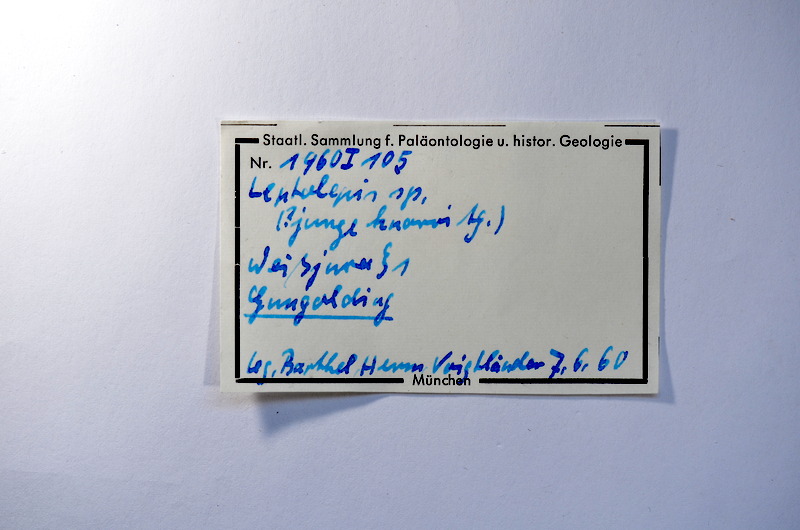 Staatl. Sammlung f. Paläontologie u. histor. Geologie
Nr. 1960 I 105
Leptolepis sp.
(? junge knorri Ag.)
Weißjura ξ 1
Gungolding
leg. Barthel Herm Voigtländer 7. 6. 60
München